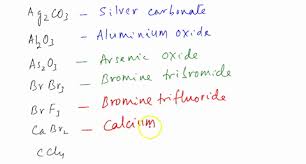 Ag2CO3 - Silver carbonate
Al2O3 - Aluminium oxide
As2O3 - Arsenic oxide
BrBr3 - Bromine tribromide
BrF3 - Bromine trifluoride
CaBr2 - Calcium
CCl4